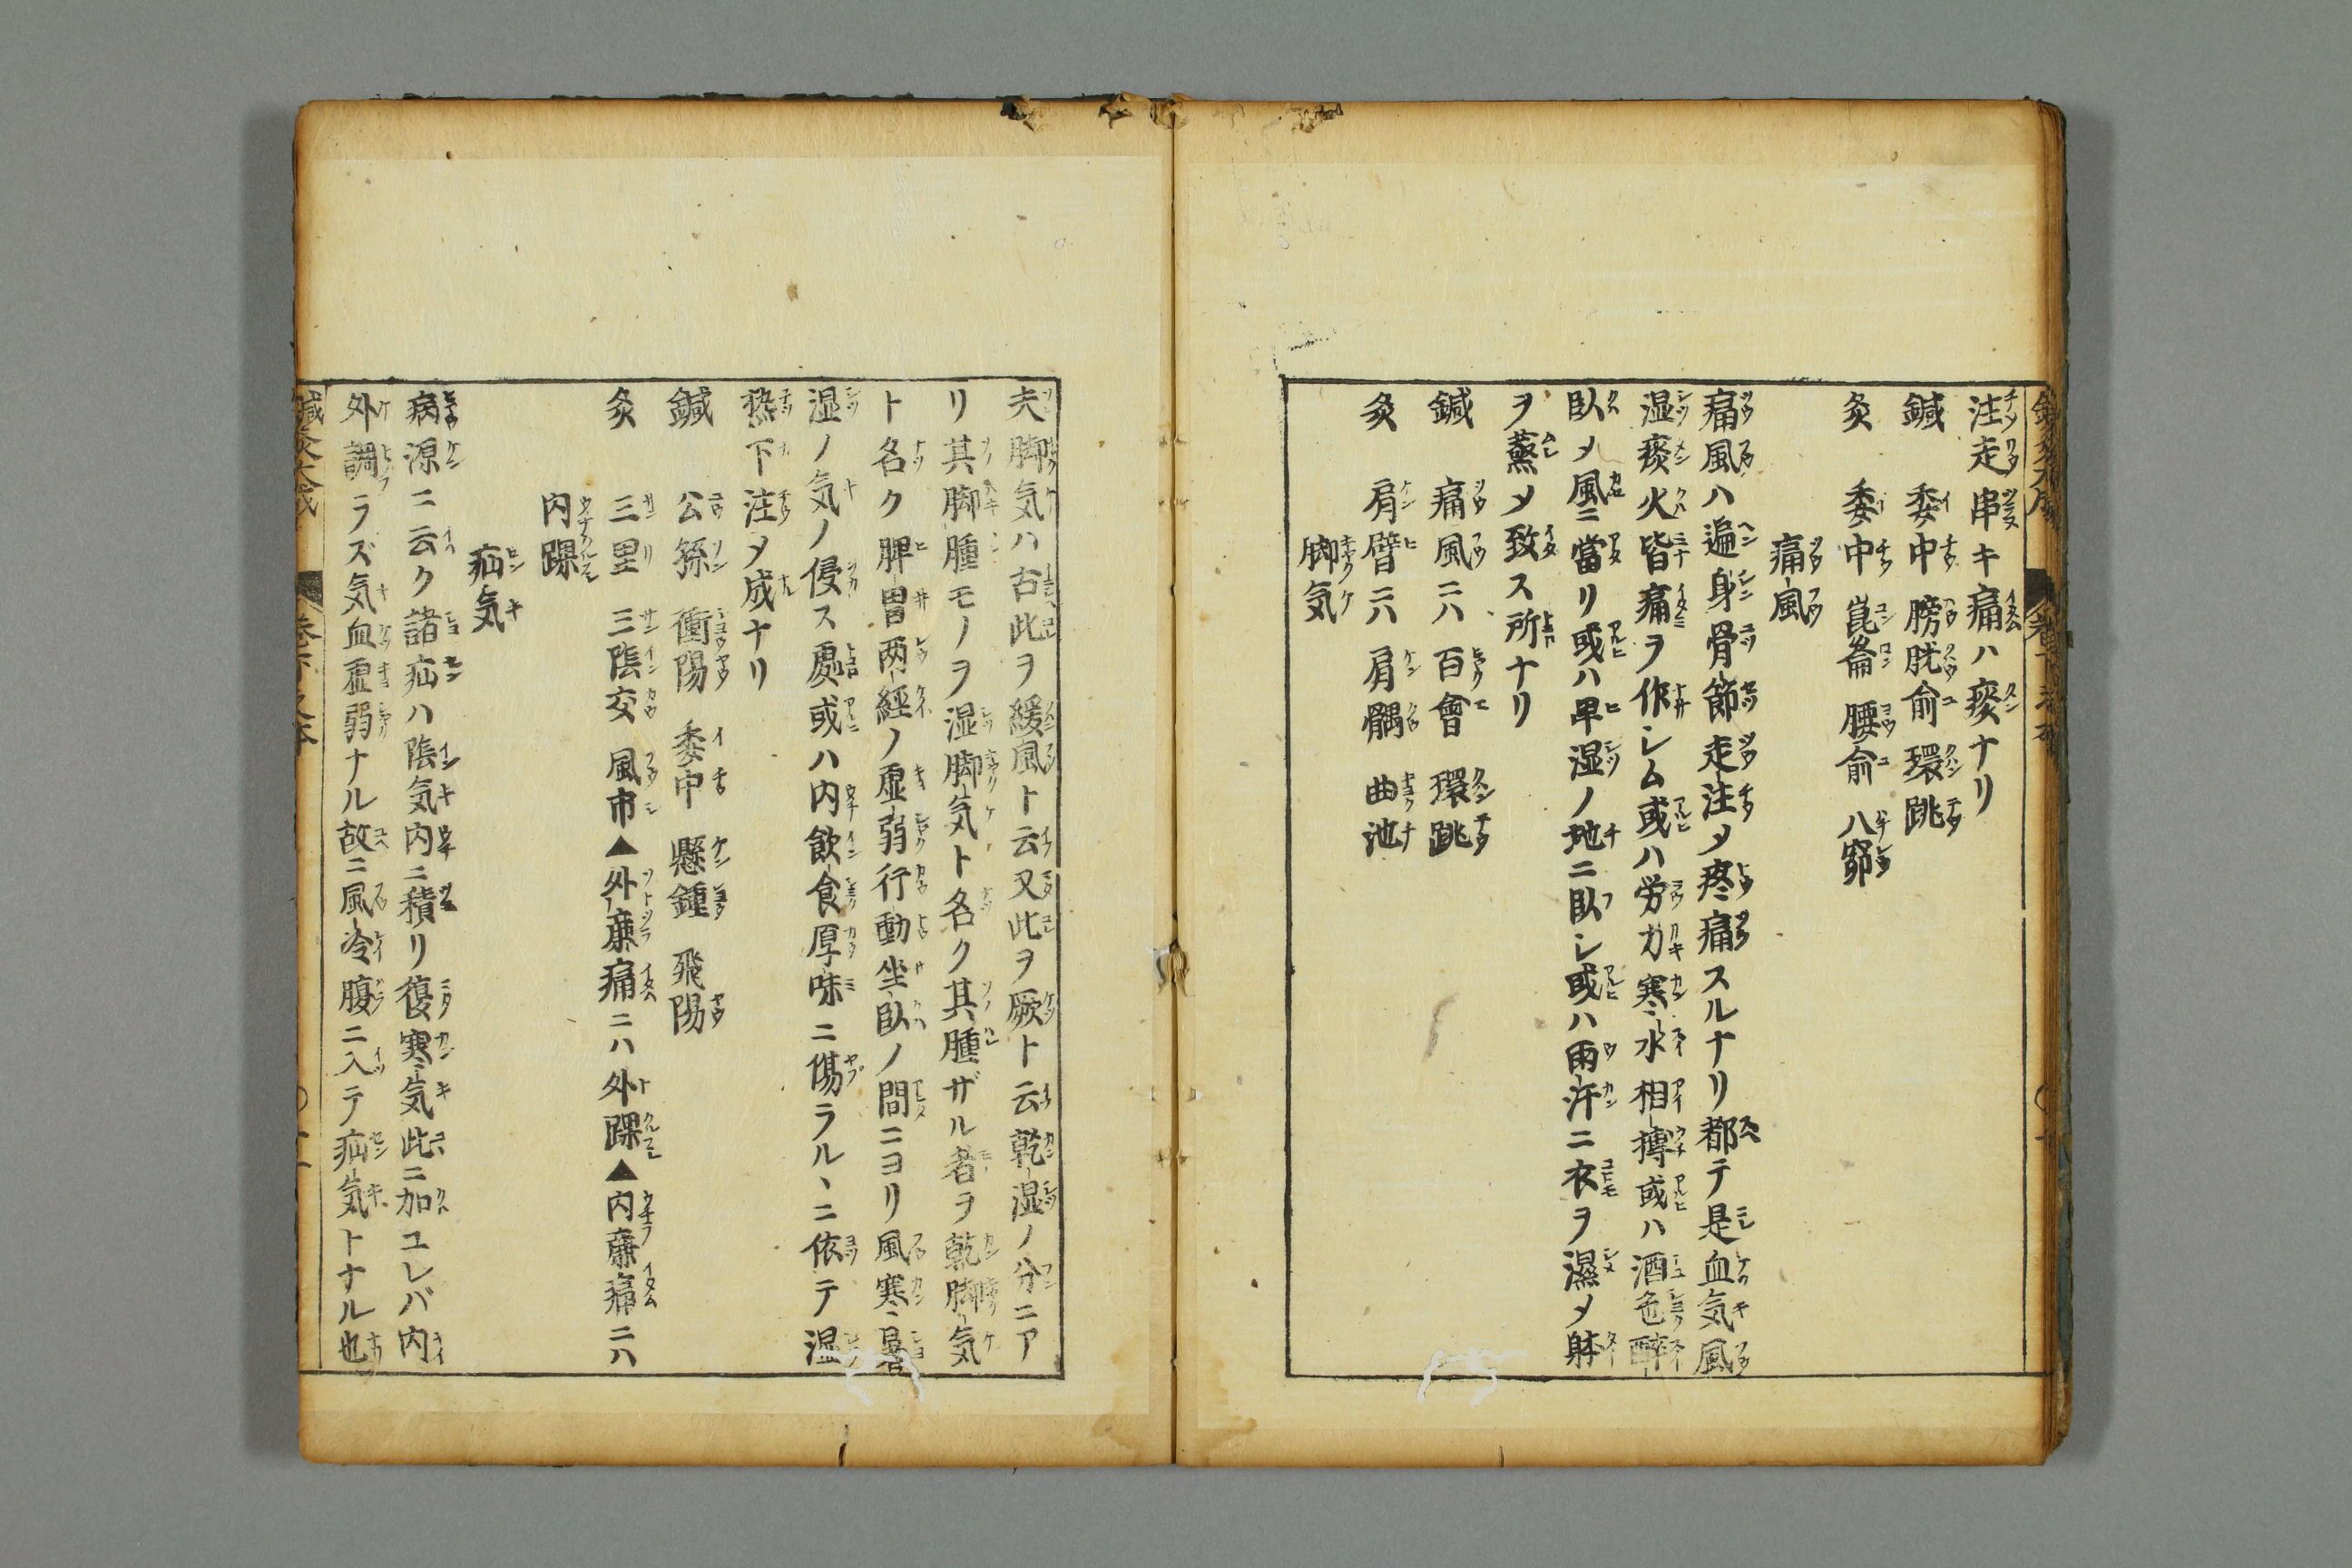 注走串キ痛ハ痰ナリ
鍼 委中 膀胱俞 環跳
灸 委中 崑崙 腰俞 八窌
痛風
痛風ハ遍身骨節走注メ疼痛スルナリ都テ是血気風
湿痰火皆痛ヲ作シム或ハ労力寒水相摶或ハ酒色醉
臥メ風ニ當リ或ハ卑湿ノ地ニ臥シ或ハ雨汗ニ衣ヲ濕メ躰
ヲ薫メ致ス所ナリ
鍼 痛風ニハ 百會 環跳
灸 肩臂ニハ 肩髃 曲池
脚気
夫脚気ハ古此ヲ緩風ト云又此ヲ厥ト云乾湿ノ分ニア
リ其脚腫モノヲ湿脚気ト名ク其腫ザル者ヲ乾脚気
ト名ク脾胃两經ノ虚弱行動坐臥ノ間ニヨリ風寒暑
湿ノ気ノ侵ス處或ハ内飲食厚味ニ傷ラルヽニ依テ湿
热下注メ成ナリ
鍼 公孫 衝陽 委中 懸鍾 飛陽
灸 三里 三陰交 風市▲外廉痛ニハ外踝▲内廉痛ニハ
内踝
疝気
病源ニ云ク諸疝ハ陰気内ニ積リ復寒気此ニ加ユレバ内
外調ラズ気血虚弱ナル故ニ風冷腹ニ入テ疝気トナル也
鍼灸大成 巻下之本